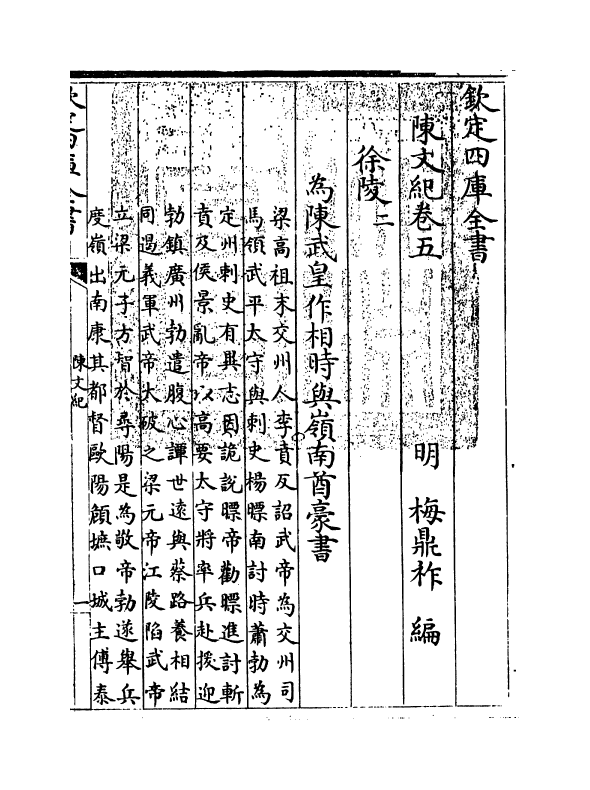 欽定四庫全書
陳文紀卷五
明 梅鼎祚 編
徐陵二
為陳武皇作相時與嶺南酋豪書
梁髙祖末交州人李賁反詔武帝為交州司
馬領武平太守與刺史楊㬓南討時蕭勃為
定州刺史有異志因詭說㬓帝勸㬓進討斬
賁及侯景亂帝以高要太守將率兵赴援迎
勃鎮廣州勃遣腹心譚世遠與蔡路養相結
同遏義軍武帝大破之梁元帝江陵陷武帝
立梁元子方智於尋陽是為敬帝勃遂舉兵
度嶺出南康其都督歐陽頠𡑅口城主傅泰
欽定四庫全書
陳文紀
一